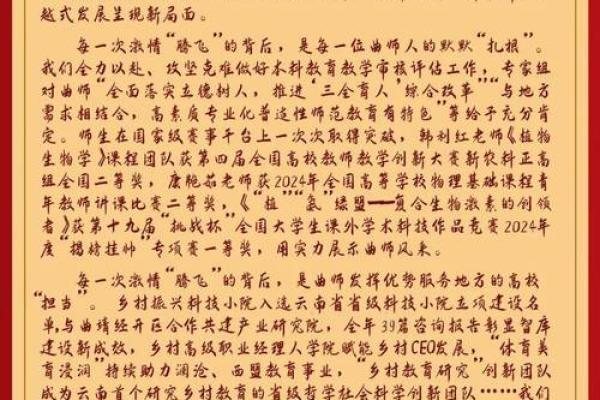 越式发展呈现新局面。
每一次激情“腾飞”的背后，是每一位曲师人的默默“扎根”。
我们全力以赴、攻坚克难做好本科教育教学审核评估工作，专家组
对曲师“全面落实立德树人，推进‘三全育人’综合改革”“与地方
需求相结合，高素质专业化普适性师范教育有特色”等给予充分肯
定。师生在国家级赛事平台上一次次取得突破，韩利红老师《植物
生物学》课程团队获第四届全国高校教师教学创新大赛新农科正高
组全国二等奖，康艳茹老师获2024年全国高等学校物理基础课程青
年教师讲课比赛二等奖，《“植”“氨”绿盟——复合生物激素的创领
者》获第十九届“挑战杯”全国大学生课外学术科技作品竞赛2024年
度“揭榜挂帅”专项赛一等奖，用实力展示曲师风采。
每一次激情“腾飞”的背后，是曲师发挥优势服务地方的高校
“担当”。乡村振兴科技小院入选云南省省级科技小院立项建设名
单，与曲靖经开区合作共建产业研究院，全年39篇咨询报告彰显智库
建设新成效，乡村高级职业经理人学院赋能乡村CEO发展，“体育美
育浸润”持续助力澜沧、西盟教育事业，“乡村教育研究”创新团队
成为云南首个研究乡村教育的省级哲学社会科学创新团队……我们